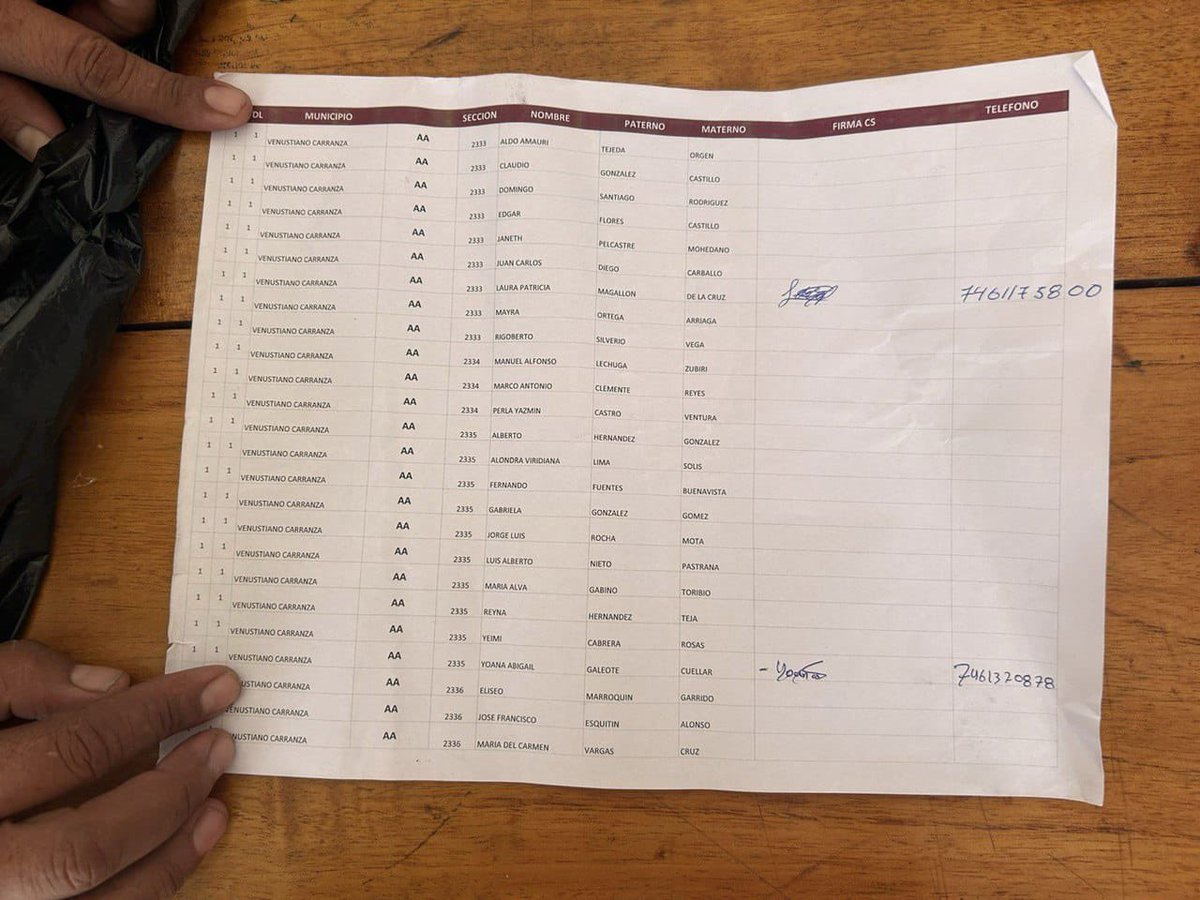 DL MUNICIPIO SECCION NOMBRE PATERNO MATERNO FIRMA CS TELEFONO
1 1 VENUSTIANO CARRANZA AA 2333 ALDO AMAURI TEJEDA ORGEN
1 1 VENUSTIANO CARRANZA AA 2333 CLAUDIO GONZALEZ CASTILLO
1 1 VENUSTIANO CARRANZA AA 2333 DOMINGO SANTIAGO RODRIGUEZ
1 1 VENUSTIANO CARRANZA AA 2333 EDGAR FLORES CASTILLO
1 1 VENUSTIANO CARRANZA AA 2333 JANETH PELCASTRE MOHEDANO
1 1 VENUSTIANO CARRANZA AA 2333 JUAN CARLOS DIEGO CARBALLO
1 1 VENUSTIANO CARRANZA AA 2333 LAURA PATRICIA MAGALLON DE LA CRUZ 7461175800
1 1 VENUSTIANO CARRANZA AA 2333 MAYRA ORTEGA ARRIAGA
1 1 VENUSTIANO CARRANZA AA 2333 RIGOBERTO SILVERIO VEGA
1 1 VENUSTIANO CARRANZA AA 2334 MANUEL ALFONSO LECHUGA ZUBIRI
1 1 VENUSTIANO CARRANZA AA 2334 MARCO ANTONIO CLEMENTE REYES
1 1 VENUSTIANO CARRANZA AA 2334 PERLA YAZMIN CASTRO VENTURA
1 1 VENUSTIANO CARRANZA AA 2335 ALBERTO HERNANDEZ GONZALEZ
1 1 VENUSTIANO CARRANZA AA 2335 ALONDRA VIRIDIANA LIMA SOLIS
1 1 VENUSTIANO CARRANZA AA 2335 FERNANDO FUENTES BUENAVISTA
1 1 VENUSTIANO CARRANZA AA 2335 GABRIELA GONZALEZ GOMEZ
1 1 VENUSTIANO CARRANZA AA 2335 JORGE LUIS ROCHA MOTA
1 1 VENUSTIANO CARRANZA AA 2335 LUIS ALBERTO NIETO PASTRANA
1 1 VENUSTIANO CARRANZA AA 2335 MARIA ALVA GABINO TORIBIO
1 1 VENUSTIANO CARRANZA AA 2335 REYNA HERNANDEZ TEJA
1 1 VENUSTIANO CARRANZA AA 2335 YEIMI CABRERA ROSAS
1 1 VENUSTIANO CARRANZA AA 2335 YOANA ABIGAIL GALEOTE CUELLAR 7461320878
NUSTIANO CARRANZA AA 2336 ELISEO MARROQUIN GARRIDO
ENUSTIANO CARRANZA AA 2336 JOSE FRANCISCO ESQUITIN ALONSO
NUSTIANO CARRANZA AA 2336 MARIA DEL CARMEN VARGAS CRUZ